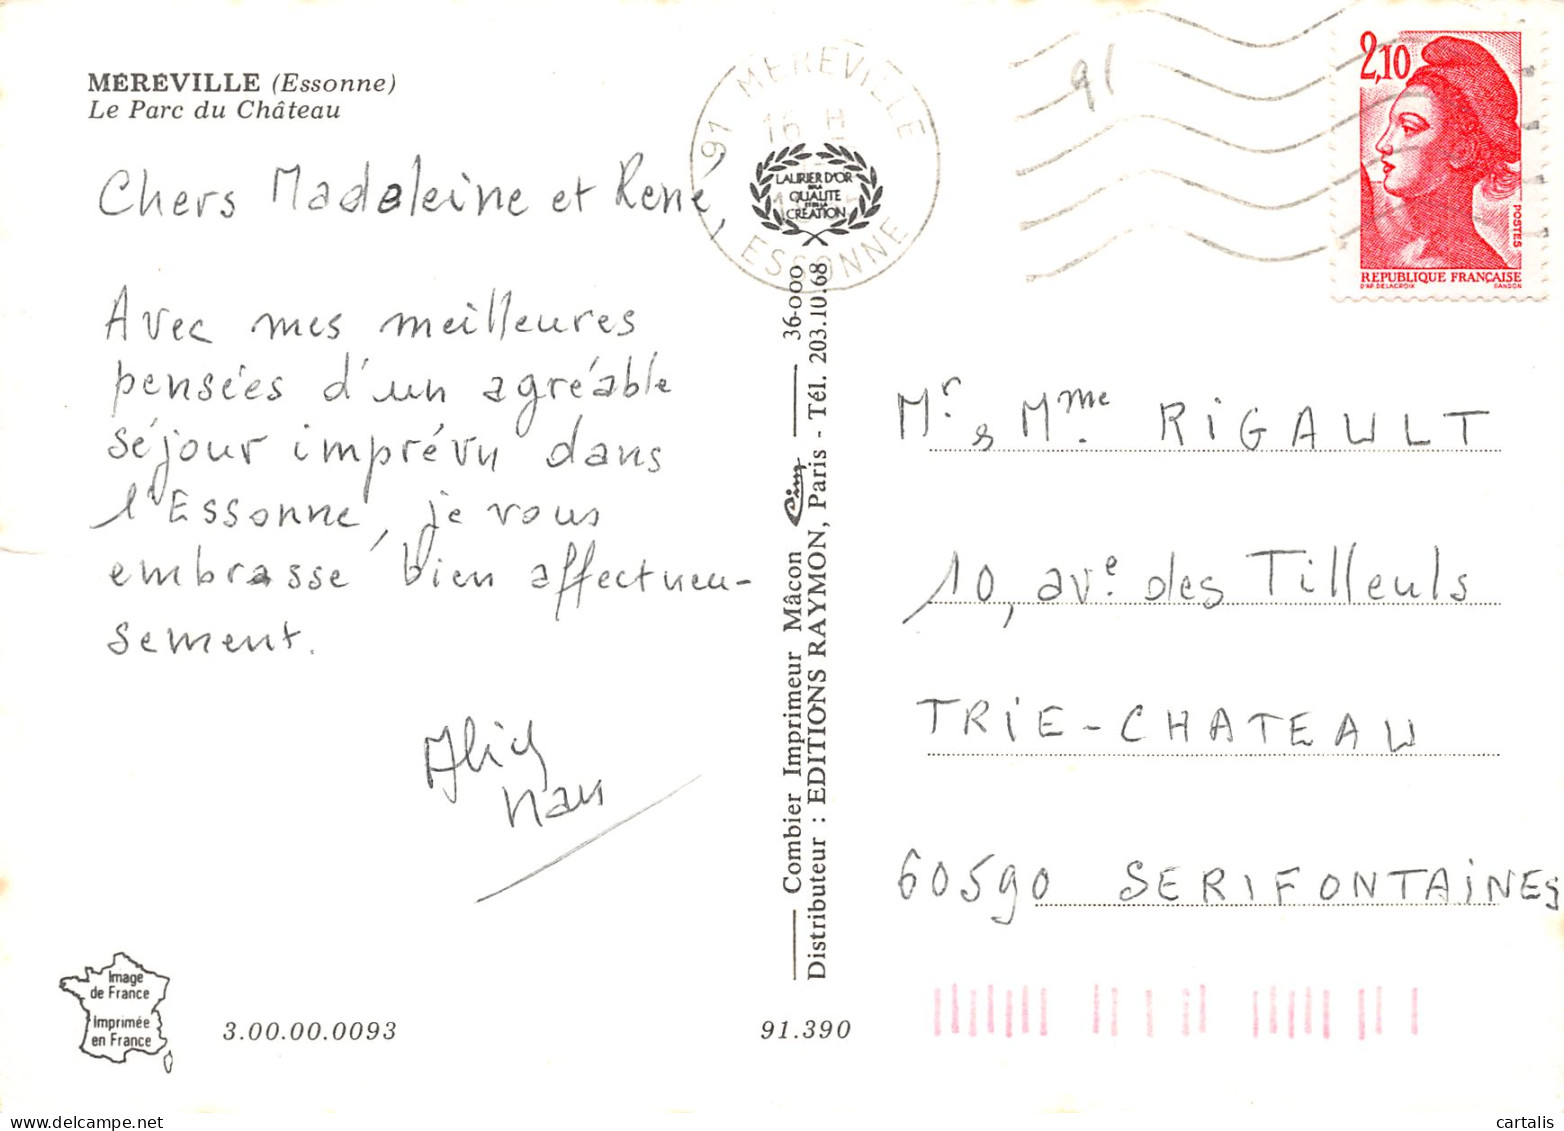 MÉRÉVILLE (Essonne)
Le Parc du Château
Chers Madeleine et René,
Avec mes meilleures
pensées d'un agréable
séjour imprévu dans
l'Essonne, je vous
embrasse bien affectueu-
sement.
91 MEREVILLE
16 H
ESSONNE
LAURIER D'OR
DE LA
QUALITE
ET DE LA
CREATION
91
2,10
POSTES
REPUBLIQUE FRANÇAISE
D'AP. DELACROIX GANDON
Combier Imprimeur Mâcon Cim 36-000
Distributeur : EDITIONS RAYMON, Paris - Tél. 203.10.68
Mr & Mme RIGAULT
10, ave des Tilleuls
TRIE-CHATEAU
60590 SERIFONTAINES
Image
de France
Imprimée
en France
3.00.00.0093
91.390
cartalis